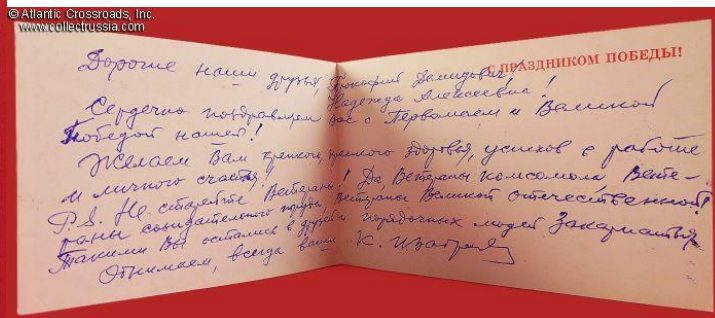 © Atlantic Crossroads, Inc.
www.collectrussia.com
С ПРАЗДНИКОМ ПОБЕДЫ!
Дорогие наши друзья, Прокофий Демидович,
Надежда Алексеевна!
Сердечно поздравляем Вас с Первомаем и Великой
Победой нашей!
Желаем Вам крепкого, крепкого здоровья, успехов в работе
и личного счастья!
P.S. Не старейте Ветераны! Да, Ветераны комсомола, Вете-
раны созидательного труда, Ветераны Великой отечественной!
Такими Вы остались в друзей и порядочных людей Закарпатья
Обнимаем, всегда ваши К. И.